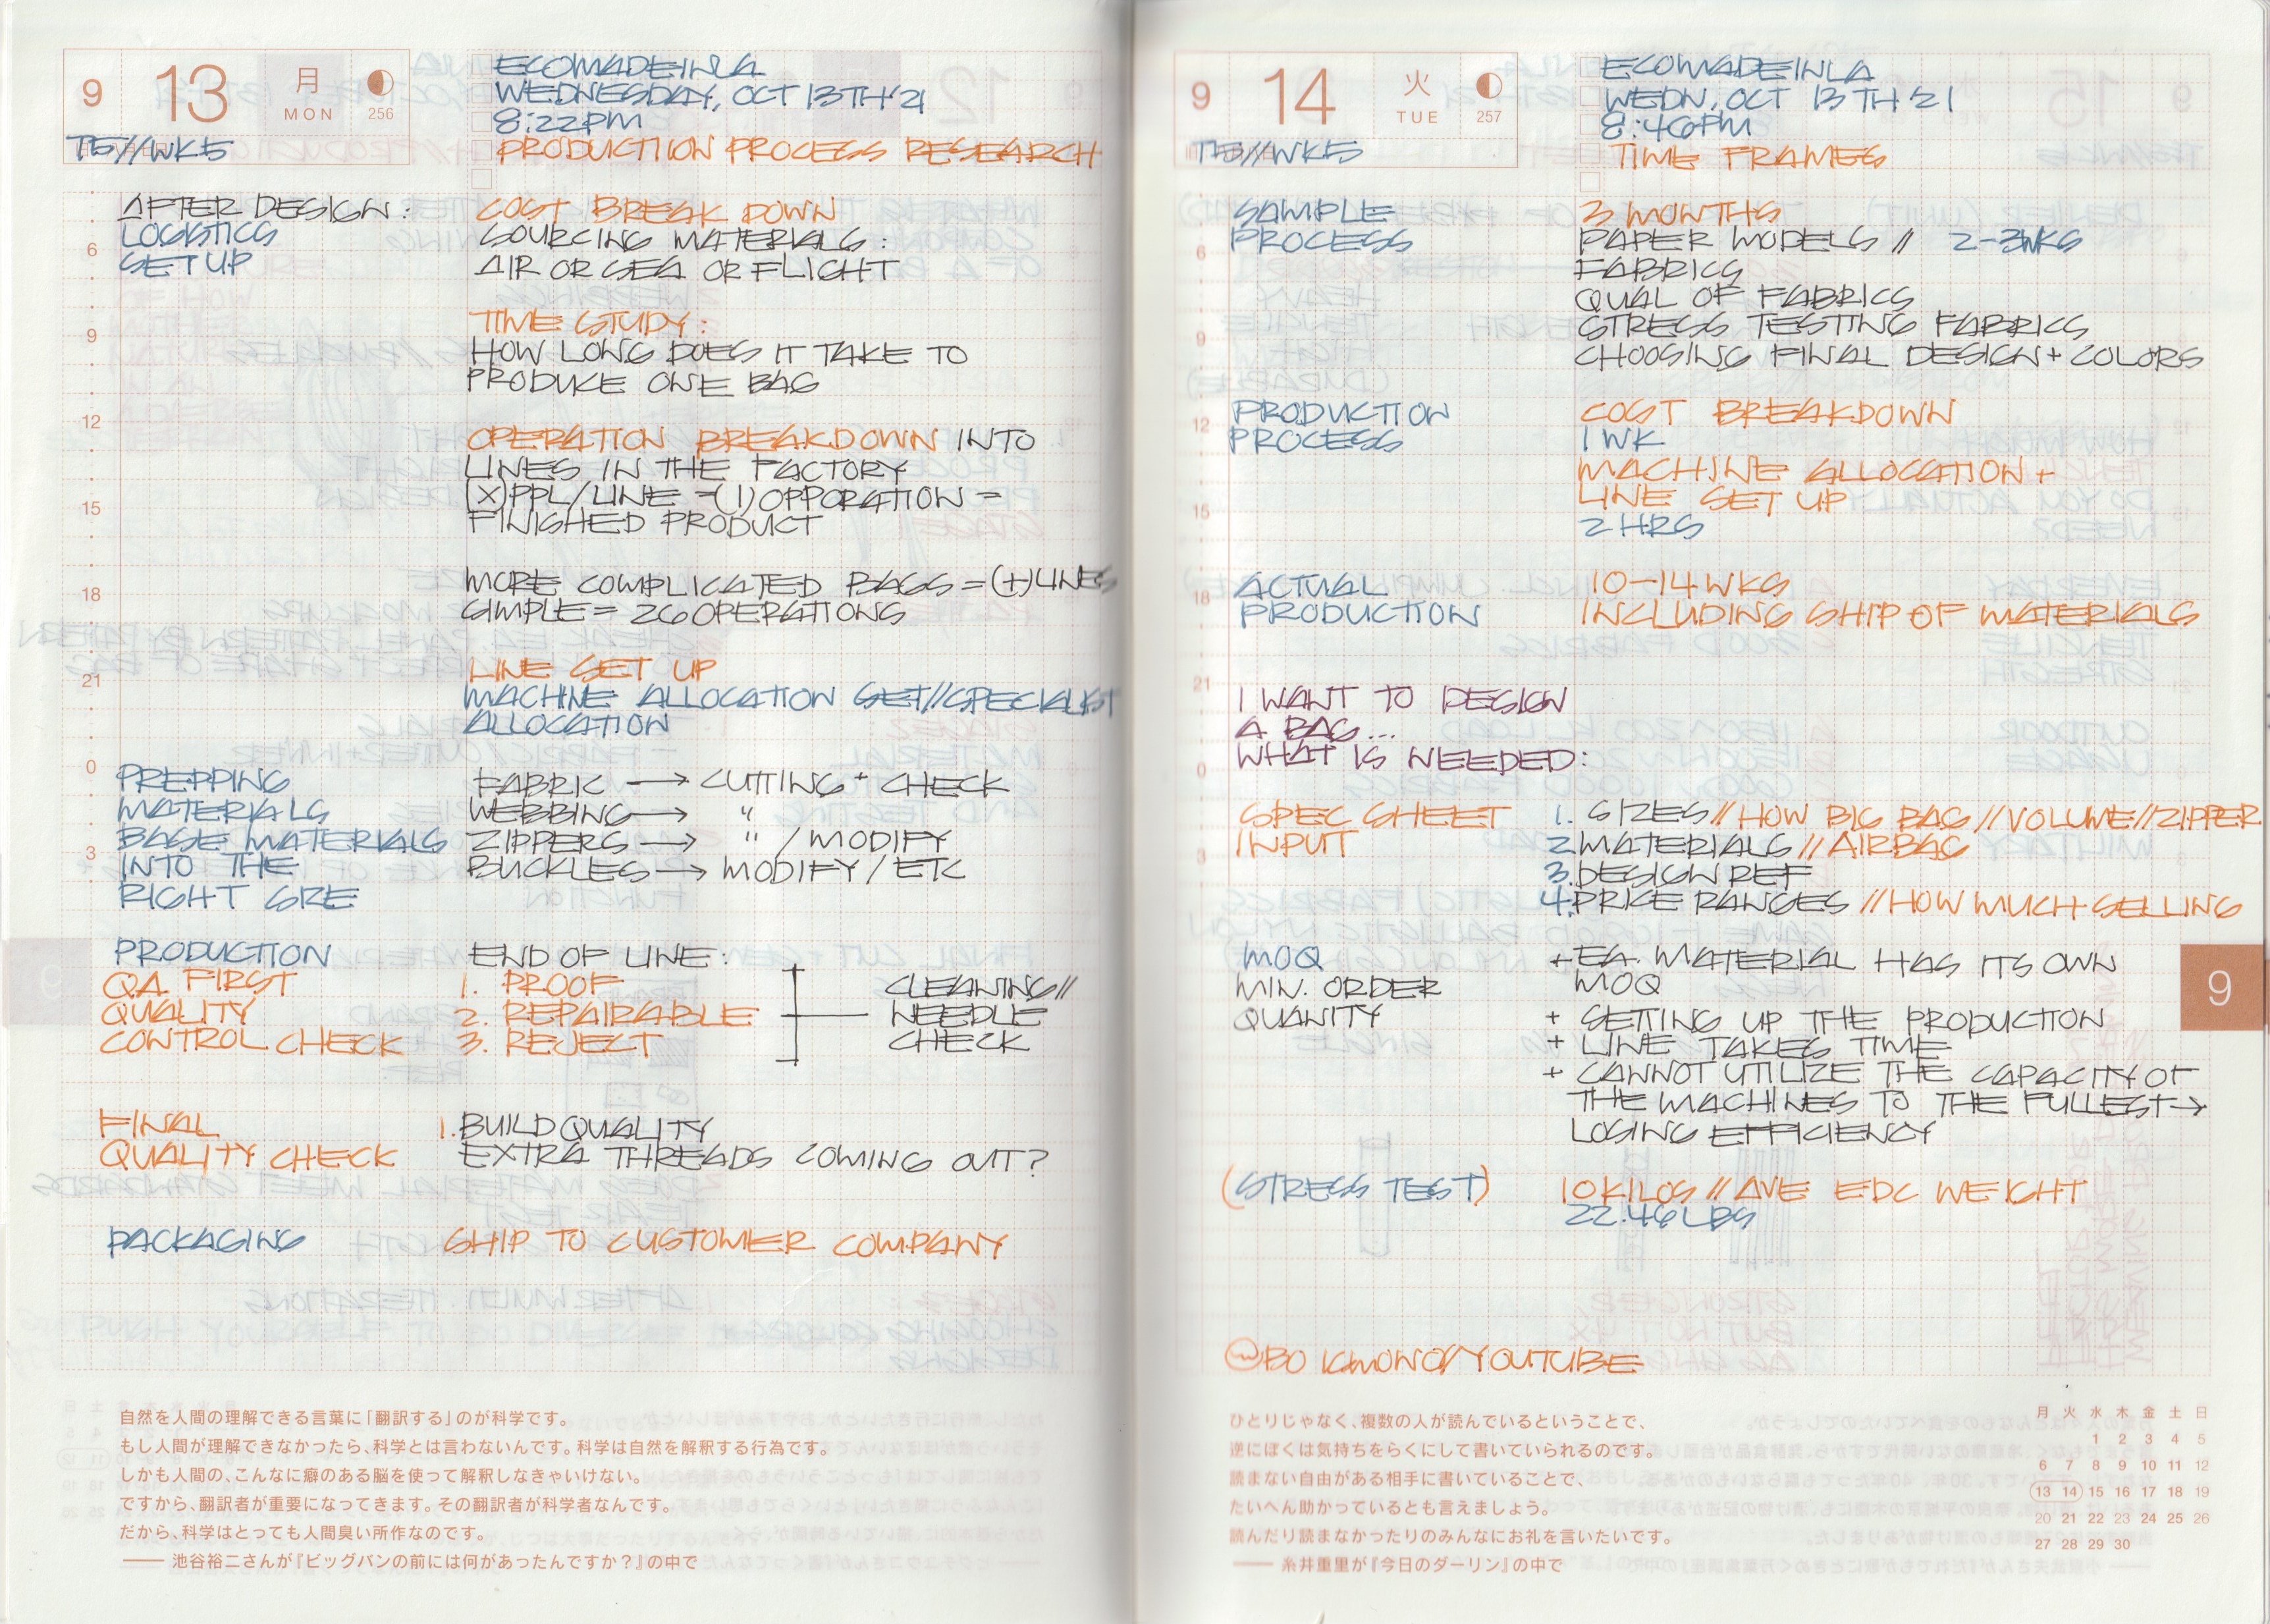 9 13 月 MON 256
T5//WK5
ECOMADEINLA
WEDNESDAY, OCT 13TH '21
8:22PM
PRODUCTION PROCESS RESEARCH
AFTER DESIGN:
LOGISTICS
SET UP
COST BREAK DOWN
SOURCING MATERIALS:
AIR OR SEA OR FLIGHT
TIME STUDY:
HOW LONG DOES IT TAKE TO
PRODUCE ONE BAG
OPERATION BREAKDOWN INTO
LINES IN THE FACTORY
(X)PPL/LINE = (1) OPPORATION =
FINISHED PRODUCT
MORE COMPLICATED BAGS = (+)LINES
SIMPLE = 26 OPERATIONS
LINE SET UP
MACHINE ALLOCATION SET//SPECIALIST
ALLOCATION
6
9
12
15
18
21
0
3
PREPPING
MATERIALS
BASE MATERIALS
INTO THE
RIGHT SIZE
FABRIC → CUTTING + CHECK
WEBBING → "
ZIPPERS → " / MODIFY
BUCKLES → MODIFY / ETC
PRODUCTION
QA FIRST
QUALITY
CONTROL CHECK
END OF LINE:
1. PROOF
2. REPAIRABLE
3. REJECT
CLEANING//
NEEDLE
CHECK
FINAL
QUALITY CHECK
1. BUILD QUALITY
EXTRA THREADS COMING OUT?
PACKAGING
SHIP TO CUSTOMER COMPANY
自然を人間の理解できる言葉に「翻訳する」のが科学です。
もし人間が理解できなかったら、科学とは言わないんです。科学は自然を解釈する行為です。
しかも人間の、こんなに癖のある脳を使って解釈しなきゃいけない。
ですから、翻訳者が重要になってきます。その翻訳者が科学者なんです。
だから、科学はとっても人間臭い所作なのです。
—— 池谷裕二さんが『ビッグバンの前には何があったんですか？』の中で
9 14 火 TUE 257
T5//WK5
ECOMADEINLA
WEDN, OCT 13TH '21
8:46PM
TIME FRAMES
SAMPLE
PROCESS
3 MONTHS
PAPER MODELS // 2-3WKS
FABRICS
QUAL OF FABRICS
STRESS TESTING FABRICS
CHOOSING FINAL DESIGN + COLORS
PRODUCTION
PROCESS
COST BREAKDOWN
1 WK
MACHINE ALLOCATION +
LINE SET UP
2 HRS
ACTUAL
PRODUCTION
10-14 WKS
INCLUDING SHIP OF MATERIALS
I WANT TO DESIGN
A BAG...
WHAT IS NEEDED:
6
9
12
15
18
21
0
3
SPEC SHEET
INPUT
1. SIZES // HOW BIG BAG // VOLUME // ZIPPER
2. MATERIALS // AIRBAG
3. DESIGN REF
4. PRICE RANGES // HOW MUCH SELLING
MOQ
MIN. ORDER
QUANITY
+ EA. MATERIAL HAS ITS OWN
MOQ
+ SETTING UP THE PRODUCTION
+ LINE TAKES TIME
+ CANNOT UTILIZE THE CAPACITY OF
THE MACHINES TO THE FULLEST →
LOSING EFFICIENCY
9
(STRESS TEST)
10 KILOS // AVE EDC WEIGHT
22.46 LBS
BO ISMONO//YOUTUBE
ひとりじゃなく、複数の人が読んでいるということで、
逆にぼくは気持ちをらくにして書いていられるのです。
読まない自由がある相手に書いていることで、
たいへん助かっているとも言えましょう。
読んだり読まなかったりのみんなにお礼を言いたいです。
—— 糸井重里が『今日のダーリン』の中で
月 火 水 木 金 土 日
1 2 3 4 5
6 7 8 9 10 11 12
13 14 15 16 17 18 19
20 21 22 23 24 25 26
27 28 29 30